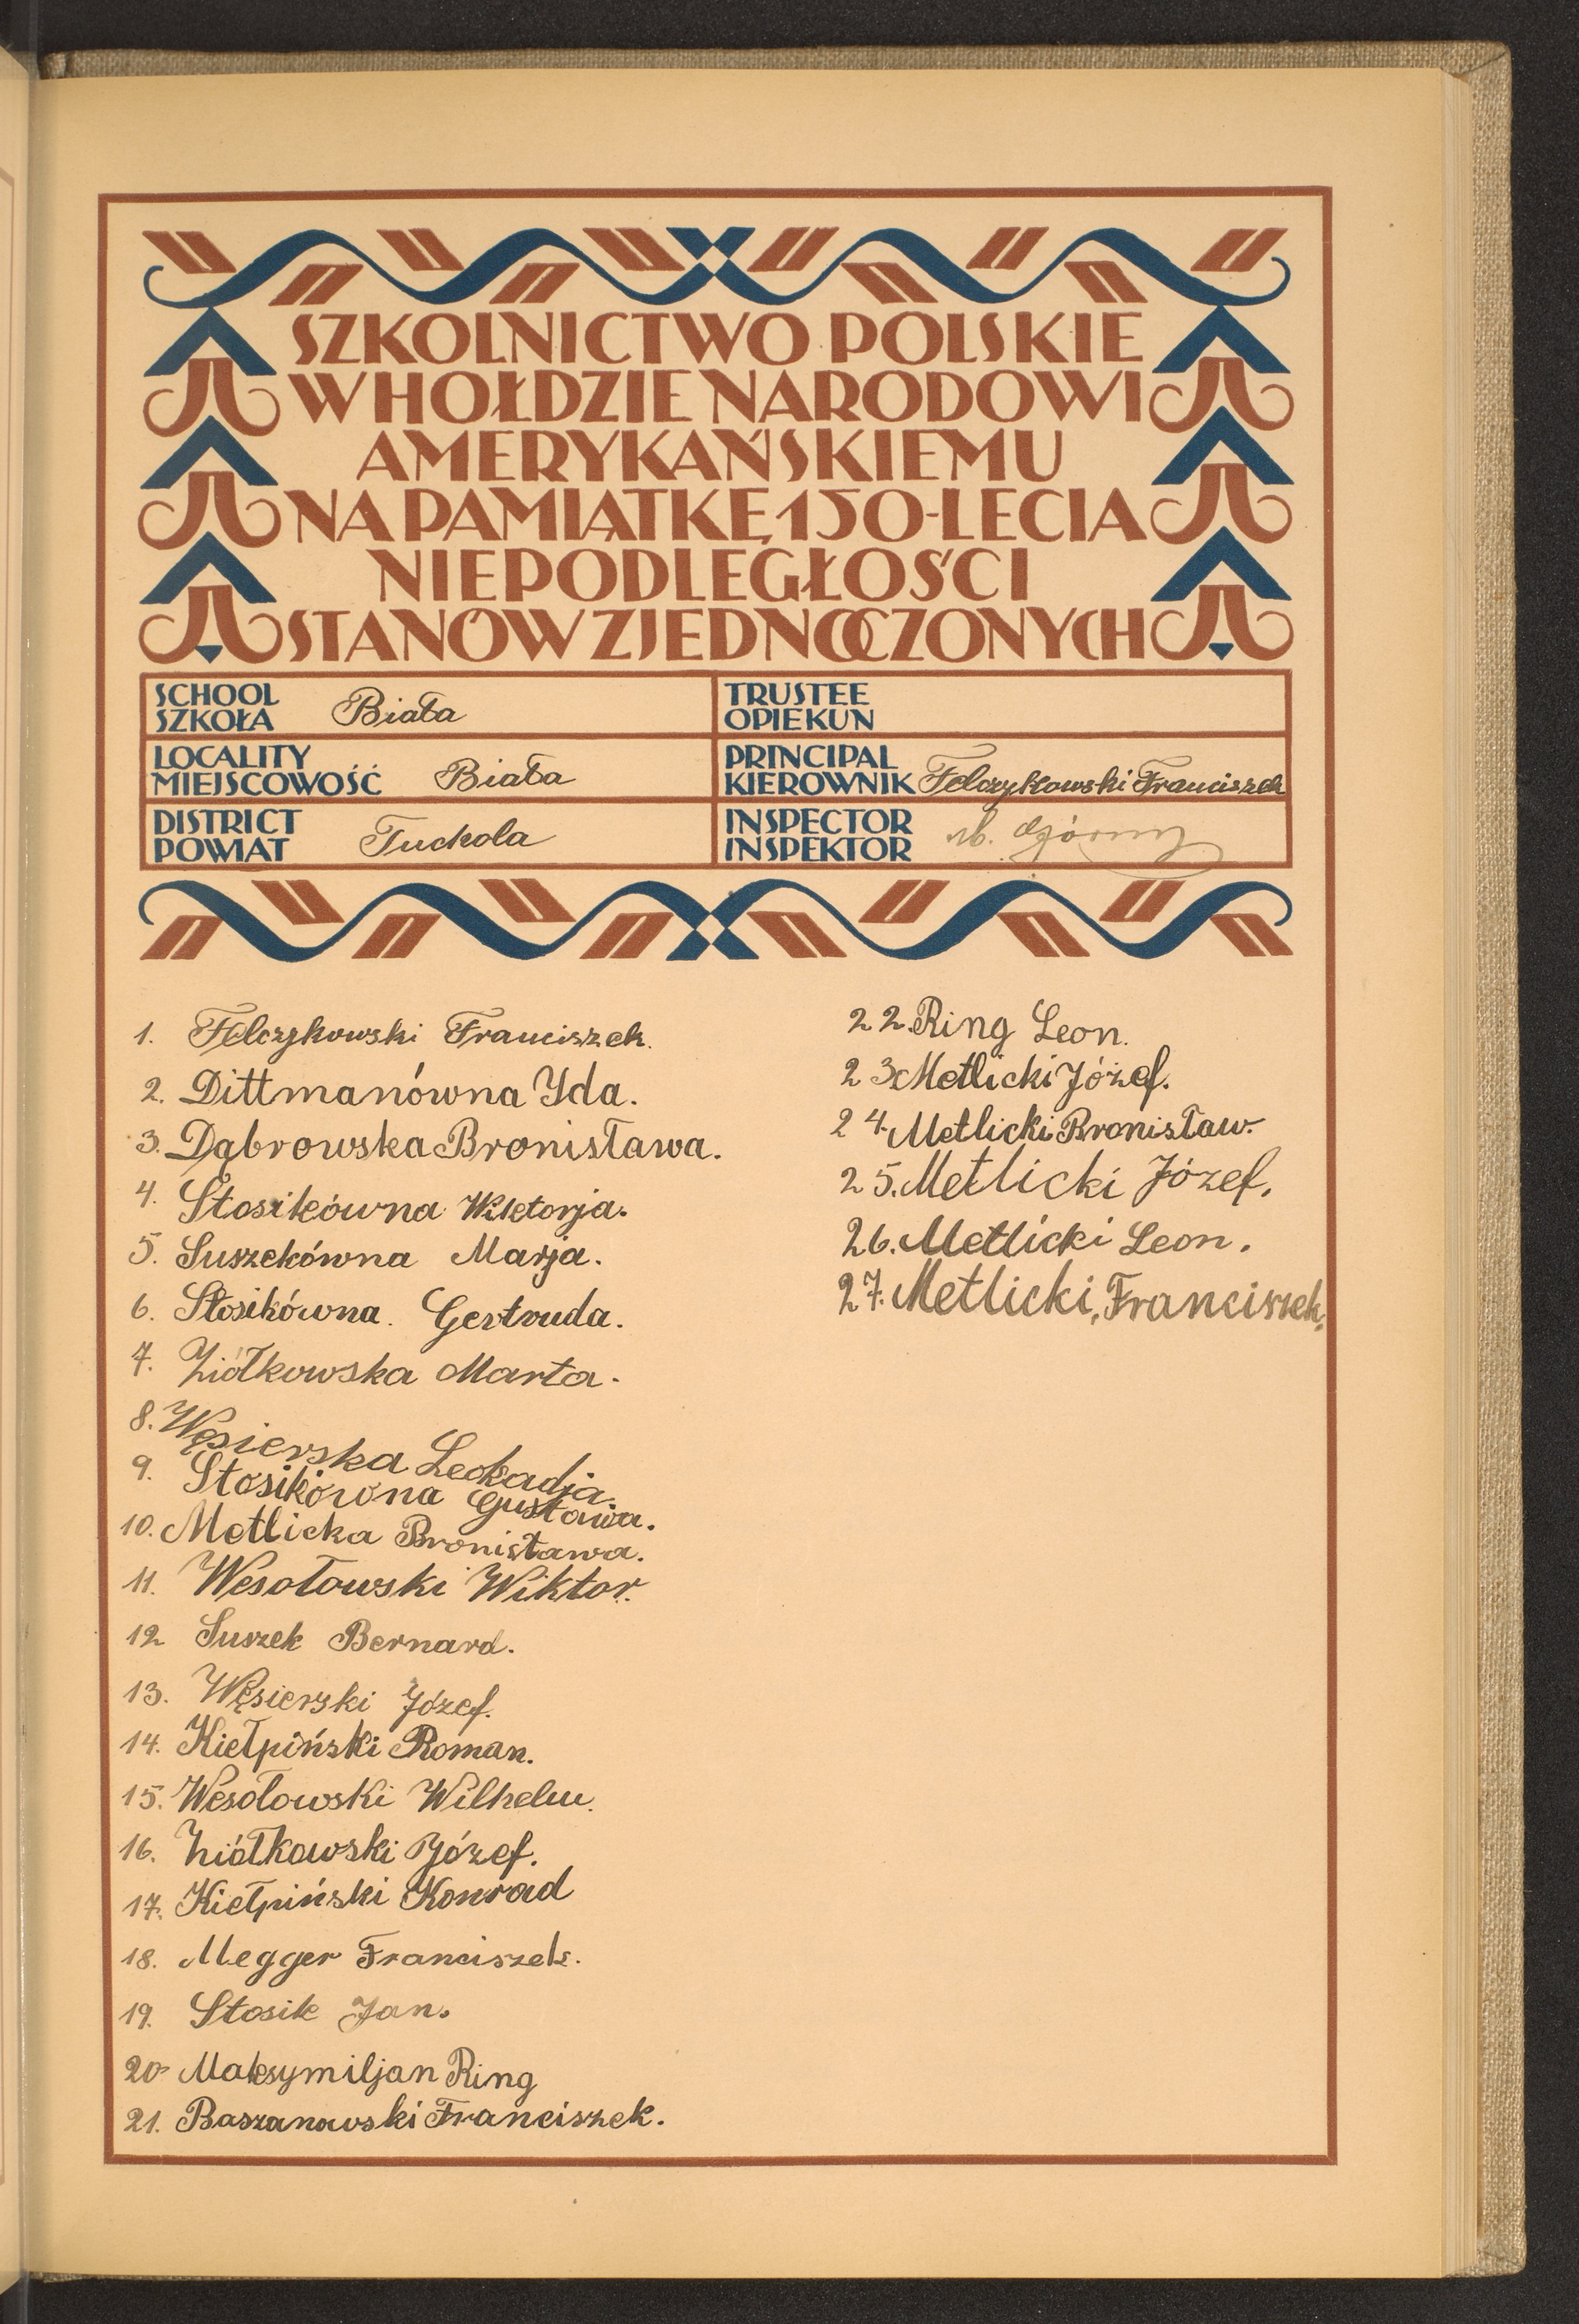 SZKOLNICTWO POLSKIE
W HOŁDZIE NARODOWI
AMERYKAŃSKIEMU
NA PAMIĄTKĘ 150-LECIA
NIEPODLEGŁOŚCI
STANÓW ZJEDNOCZONYCH
SCHOOL
SZKOŁA Biała
TRUSTEE
OPIEKUN
LOCALITY
MIEJSCOWOŚĆ Biała
PRINCIPAL
KIEROWNIK Felczykowski Franciszek
DISTRICT
POWIAT Tuchola
INSPECTOR
INSPEKTOR Górny
1. Felczykowski Franciszek.
2. Dittmanówna Yda.
3. Dąbrowska Bronisława.
4. Stosikówna Wiktorja.
5. Suszekówna Marja.
6. Stosikówna. Gertruda.
7. Ziółkowska Marta.
8. Węsierska Leokadja.
9. Stosikówna Gustawa.
10. Metlicka Bronisława.
11. Wesołowski Wiktor.
12 Suszek Bernard.
13. Węsierski Józef.
14. Kiełpiński Roman.
15. Wesołowski Wilhelm.
16. Ziółkowski Józef.
17. Kiełpiński Konrad
18. Megger Franciszek.
19. Stosik Jan.
20 Maksymiljan Ring
21. Baszanowski Franciszek.
22. Ring Leon.
23 Metlicki Józef.
24. Metlicki Bronisław.
25. Metlicki Józef.
26. Metlicki Leon.
27. Metlicki, Franciszek.